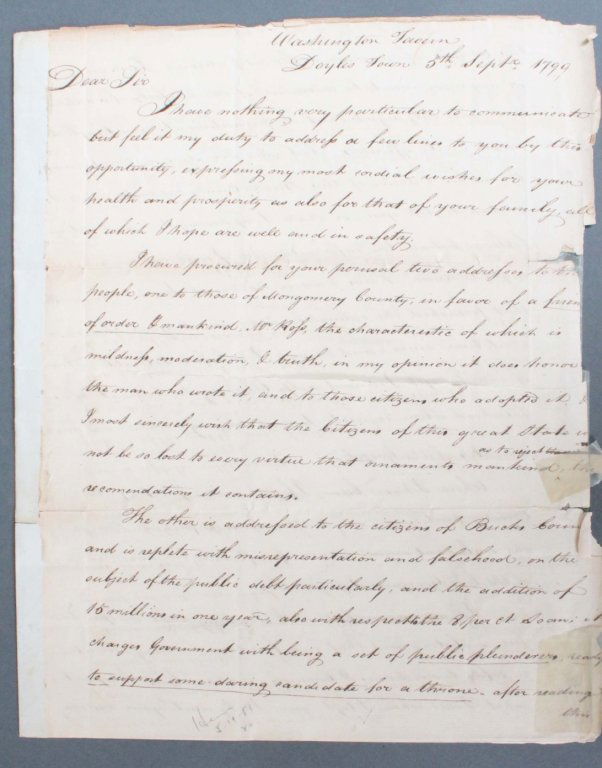 Washington Tavern
Doyles Town 5th Septr. 1799
Dear Sir
I have nothing very particular to communicate
but feel it my duty to address a few lines to you by this
opportunity, expressing my most cordial wishes for your
health and prosperity as also for that of your family, all
of which I hope are well and in safety
I have procured for your perusal two addresses to the
people, one to those of Montgomery County, in favor of a frien
of order & mankind, Mr Ross, the characteristic of which is
mildness, moderation, & truth, in my opinion it does honor
the man who wrote it, and to those citizens who adopted it.
I most sincerely wish that the Citizens of this great State
as to reject
not be so lost to every virtue that ornaments mankind,
recomendations it contains.
The other is addressed to the citizens of Bucks Coun
and is replete with misrepresentation and falsehood, on the
subject of the public debt particularly, and the addition of
15 millions in one year, also with respect to the 8 per Ct Loan;
charges Government with being a set of public plunderers, ready
to support some daring candidate for a throne - after reading
this